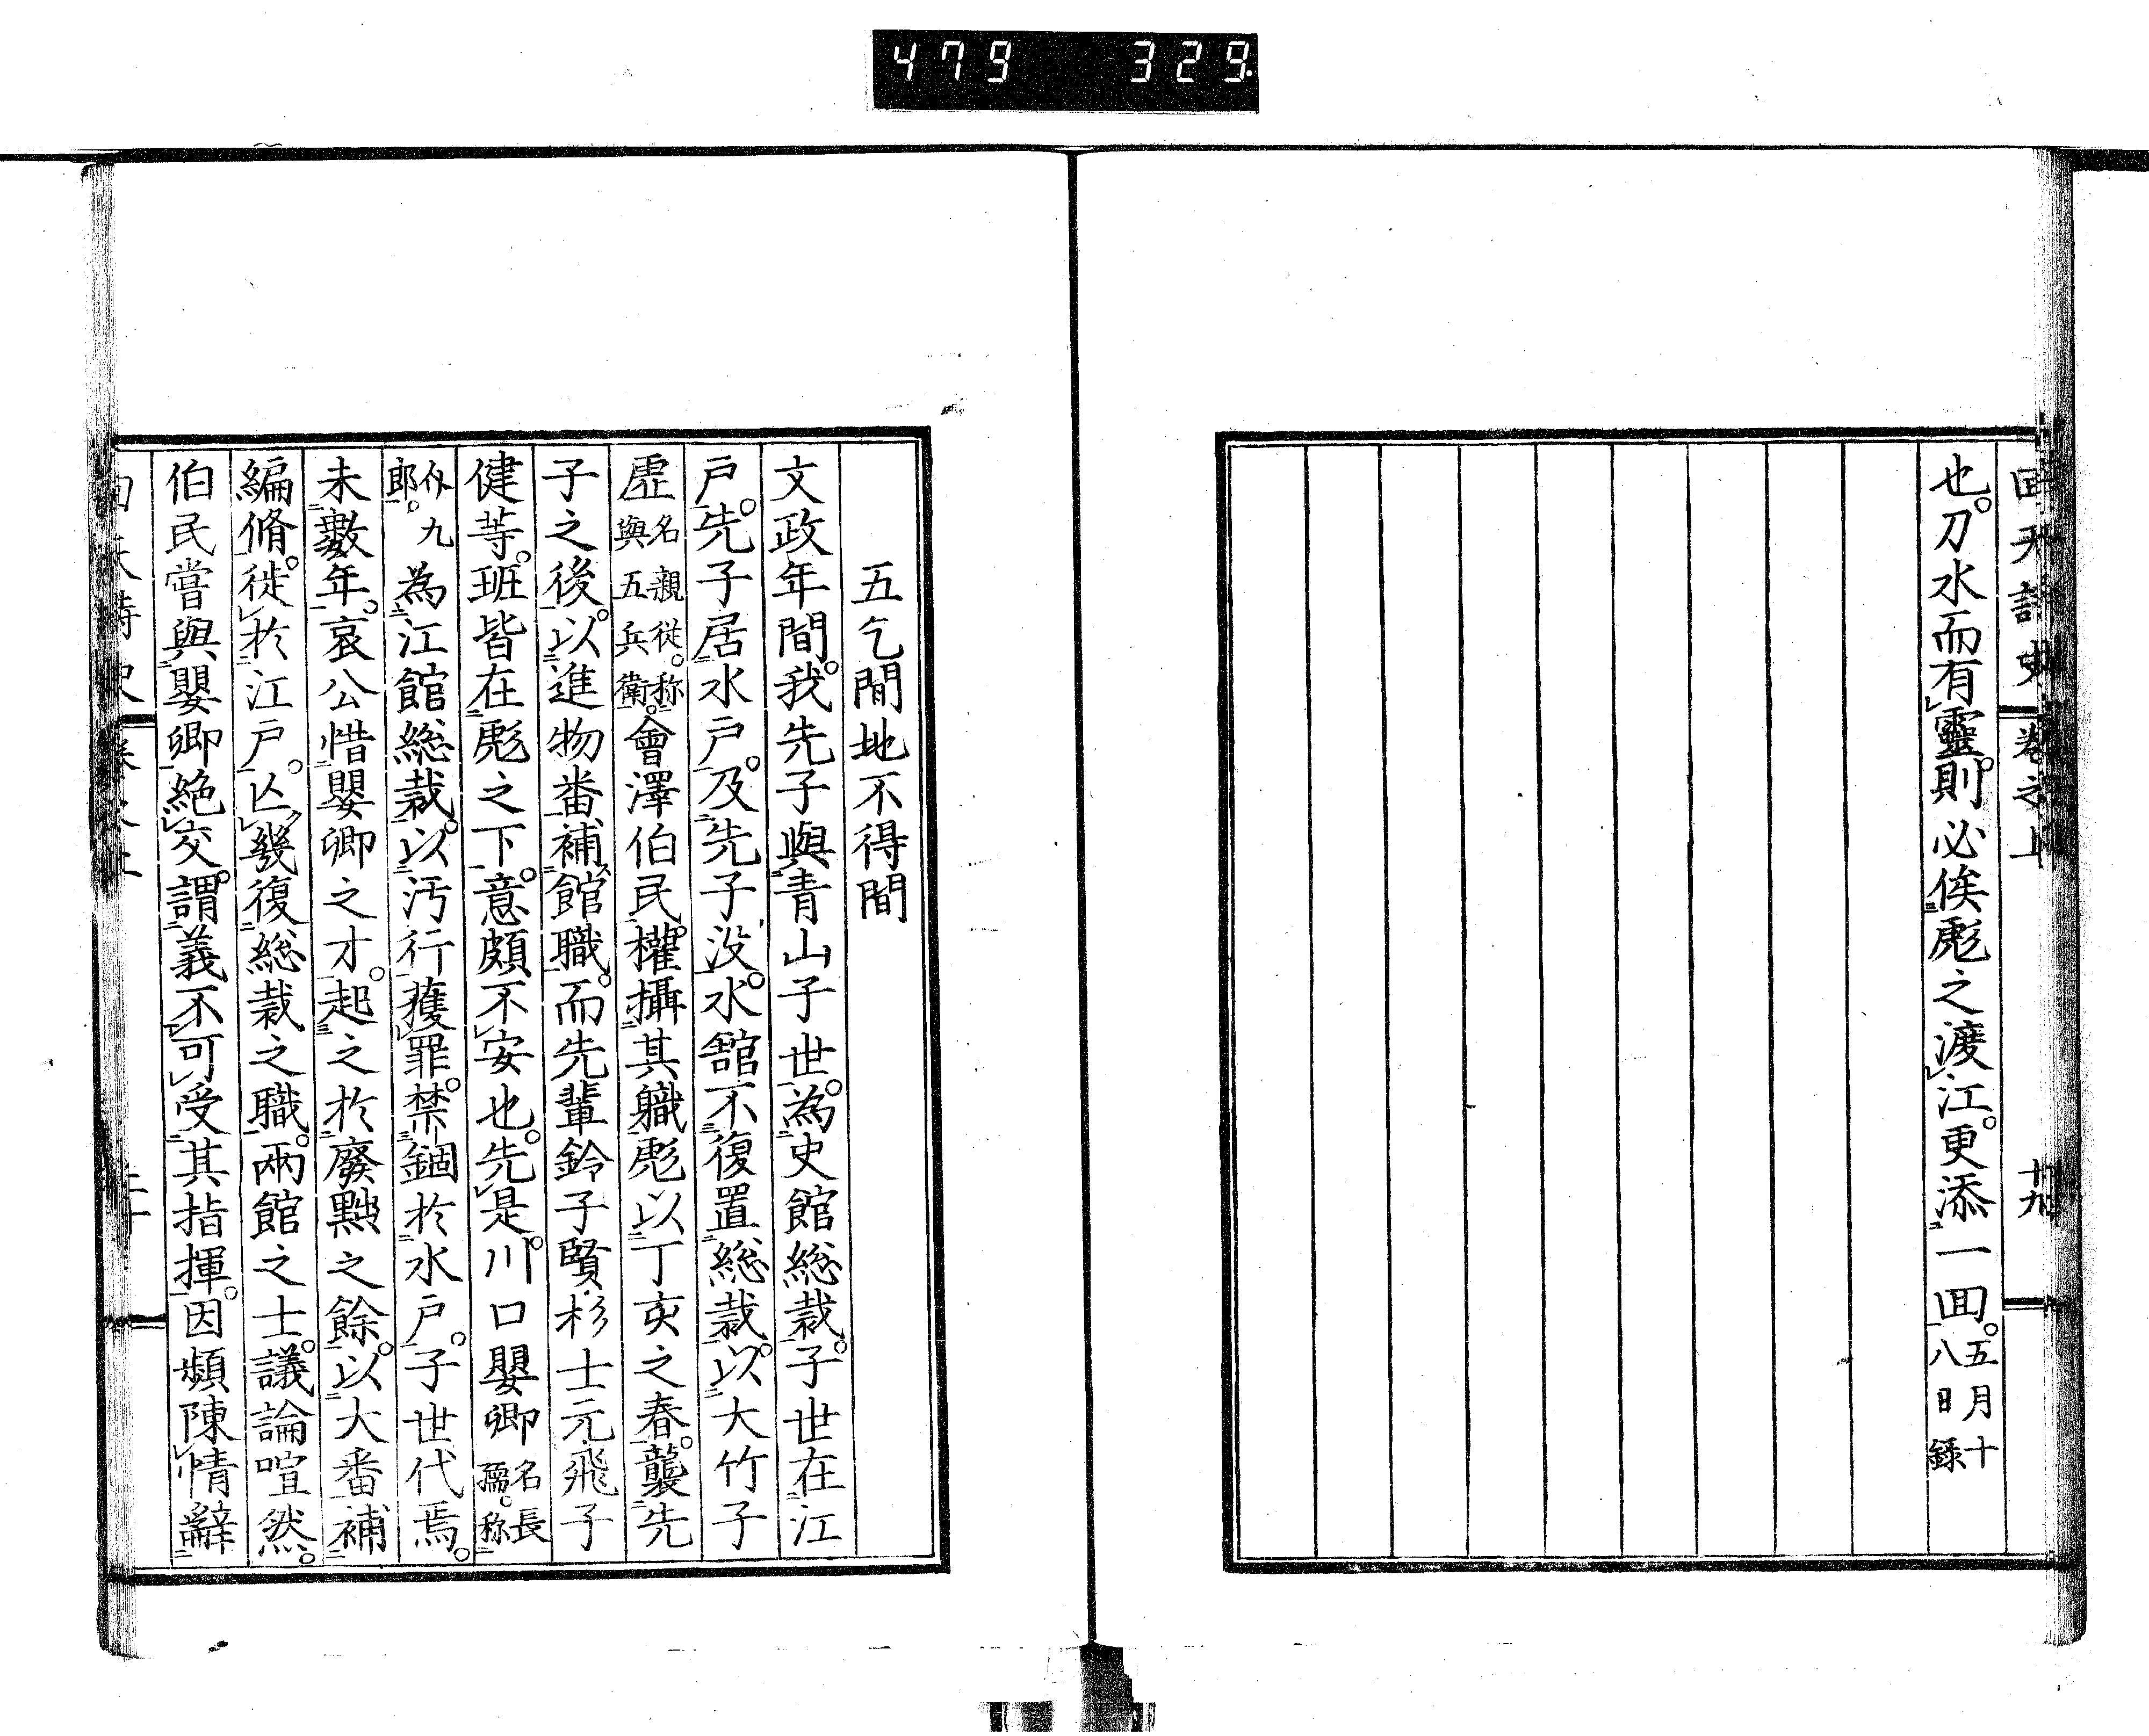 479 329.
回天詩史 卷之上 十九
也。刀水而有靈。則必俟彪之渡江。更添一回。五月十八日錄
五乞閒地不得閒
文政年間。我先子與青山子世。為史館総裁。子世在江
戶。先子居水戶。及先子沒。水舘不復置総裁。以大竹子
虛名親從。称與五兵衛。會澤伯民。權攝其職彪以丁亥之春。襲先
子之後。以進物番補館職。而先輩鈴子賢杉士元飛子
健等。班皆在彪之下。意頗不安也。先是。川口嬰卿名長孺。称
九郎。為江館総裁。以汚行獲罪。禁錮於水戶。子世代焉。
未數年。哀公惜嬰卿之才。起之於廢黜之餘。以大番補
編脩。徙於江戶。亾幾復総裁之職。兩館之士。議論喧然。
伯民嘗與嬰卿絶交。謂義不可受其指揮。因頻陳情辭